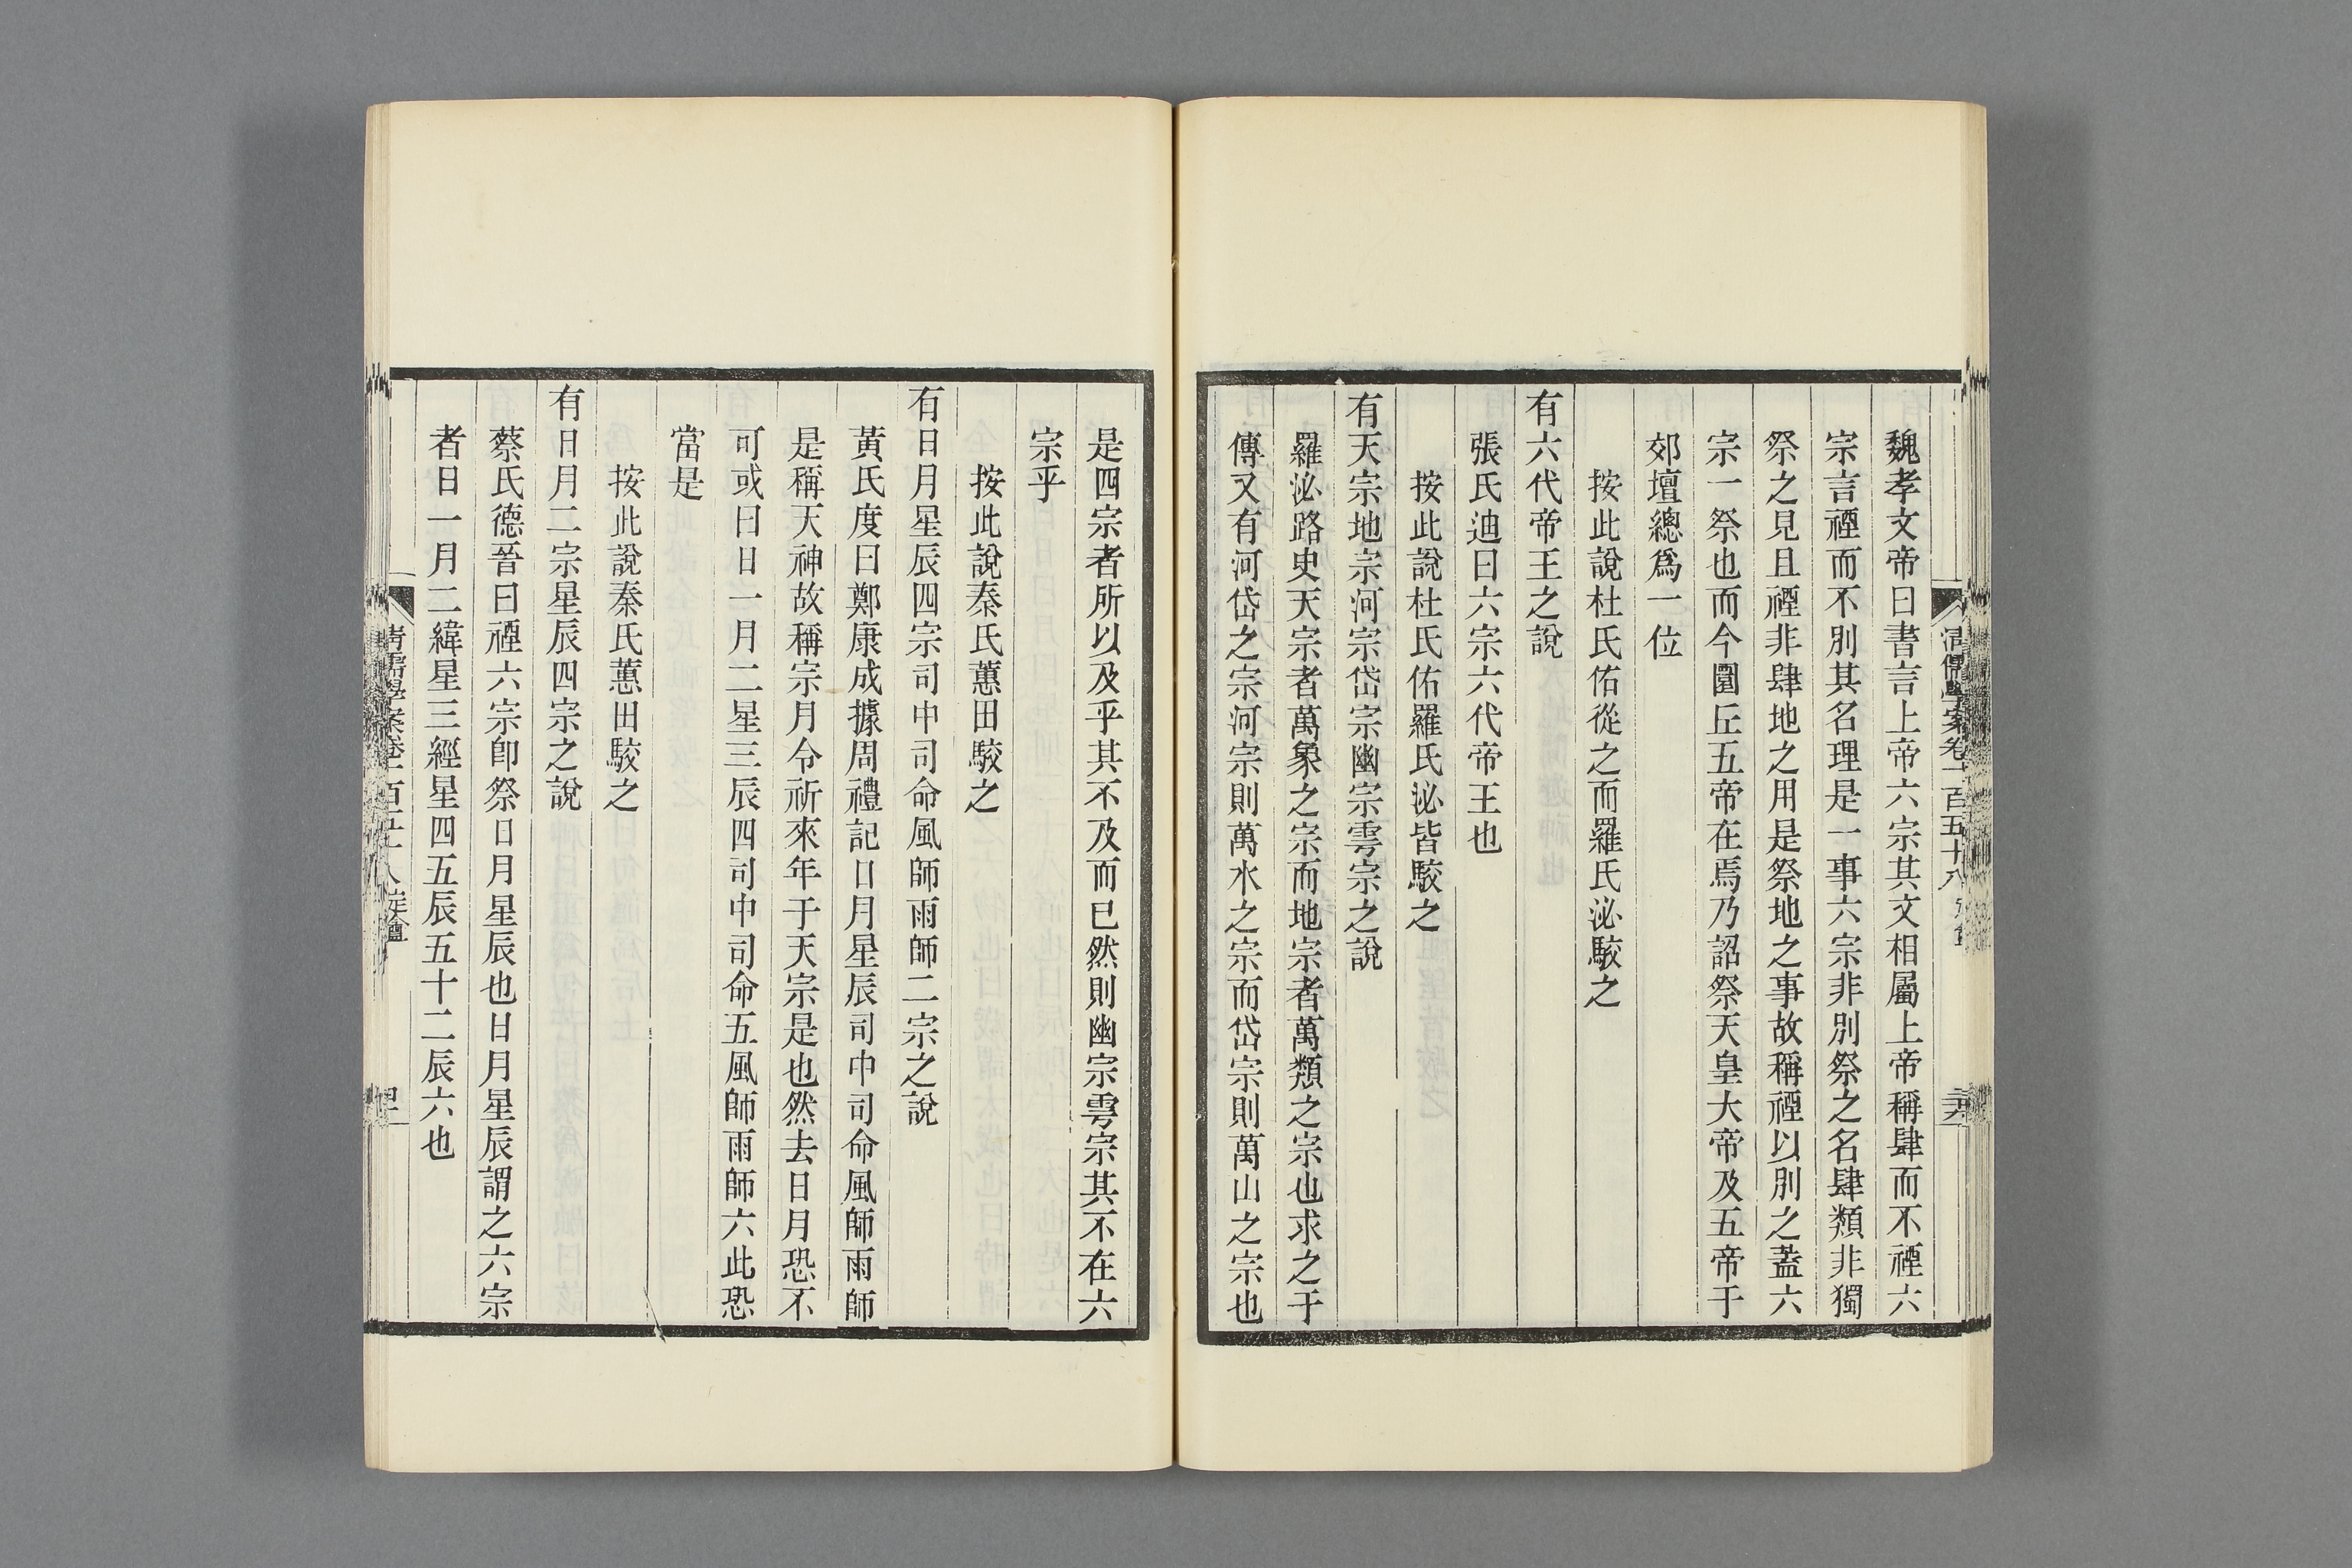 清儒學案卷一百五十八
魏孝文帝曰書言上帝六宗其文相屬上帝稱肆而不禋六
宗言禋而不別其名理是一事六宗非別祭之名肆類非獨
祭之見且禋非肆地之用是祭地之事故稱禋以別之蓋六
宗一祭也而今圜丘五帝在焉乃詔祭天皇大帝及五帝于
郊壇總爲一位
按此說杜氏佑從之而羅氏泌駮之
有六代帝王之說
張氏迪曰六宗六代帝王也
按此說杜氏佑羅氏泌皆駮之
有天宗地宗河宗岱宗幽宗雩宗之說
羅泌路史天宗者萬象之宗而地宗者萬類之宗也求之于
傳又有河岱之宗河宗則萬水之宗而岱宗則萬山之宗也
是四宗者所以及乎其不及而已然則幽宗雩宗其不在六
宗乎
按此說秦氏蕙田駮之
有日月星辰四宗司中司命風師雨師二宗之說
黃氏度曰鄭康成據周禮記日月星辰司中司命風師雨師
是稱天神故稱宗月令祈來年于天宗是也然去日月恐不
可或曰日一月二星三辰四司中司命五風師雨師六此恐
當是
按此說秦氏蕙田駮之
有日月二宗星辰四宗之說
蔡氏德晉曰禋六宗卽祭日月星辰也日月星辰謂之六宗
者日一月二緯星三經星四五辰五十二辰六也
清儒學案卷一百五十八